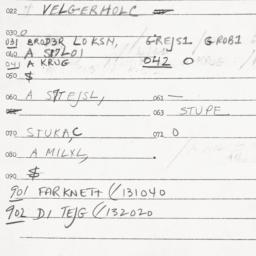 022 VELGERHOLC
030 0
031 BROD3R LOKSN, GREJS1 GROB1
040 A S17LOI
041 A KRUG 042 0
050 $
060 A STEJSL, 061 —
063 STUPE
070 STUKA,C 072 0
080 A MILXL, .
090 $
901 FARKNETT (/131040
902 DI TEJG (/132020